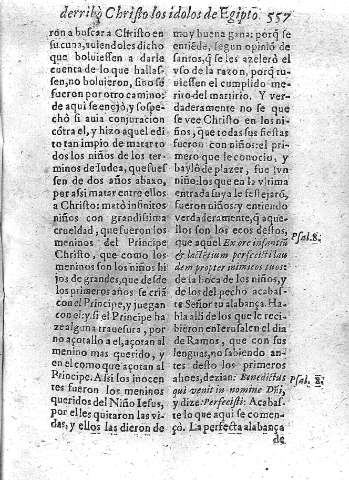 derribò Christo los idolos de Egipto. 557
ron a buscar a Christo en
su cuna, siendoles dicho
que boluiessen a darle
cuenta de lo que hallas-
sen, no boluieron, sino se
fueron por otro camino:
de aqui se enojò, y sospe-
chò si auia conjuracion
cõtra el, y hizo aquel edi
to tan impio de matar to
dos los niños de los ter-
minos de Iudea, que fues
sen de dos años abaxo,
por assi matar entre ellos
a Christo: matò infinitos
niños con grandissima
crueldad, que fueron los
meninos del Principe
Christo, que como los
meninos son los niños hi
jos de grandes, que desde
los primeros años se criã
con el Principe, y juegan
con el: y si el Principe ha
ze alguna trauesura, por
no açotarlo a el, açotan al
menino mas querido, y
en el como que açotan al
Principe. Assi los inocen
tes fueron los meninos
queridos del Niño Iesus,
por el les quitaron las vi-
das, y ellos las dieron de
muy buena gana: porq̃ se
entiẽde, segun opiniõ de
santos, q̃ se les azelerò el
vso de la razon, porq̃ tu-
uiessen el cumplido me-
rito del martirio. Y ver-
daderamente no se que
se vee Christo en los ni-
ños, que todas sus fiestas
fueron con niños: el pri-
mero que le conocio, y
baylò de plazer, fue vn
niño, los que en la vltima
entrada suya le festejarõ,
fueron niños: y entiendo
verdaderamente, q̃ aque-
llos son los ecos destos,
que aquel Ex ore infantiũ
& lactẽtium perfecisti lau
dem propter inimicos tuos:
de la boca de los niños, y
de los del pecho acabaste
Señor tu alabança. Ha-
bla alli de los que le reci-
bieron en Ierusalen el dia
de Ramos, que con sus
lenguas, no sabiendo an-
tes desto los primeros
ahoes, dezian: Benedictus
qui venit in nomine Dñi,
y dize: Perfecisti: Acabas-
te lo que aqui se comen-
çò. La perfecta alabãça
de
Psal. 8.
Psal. 8.